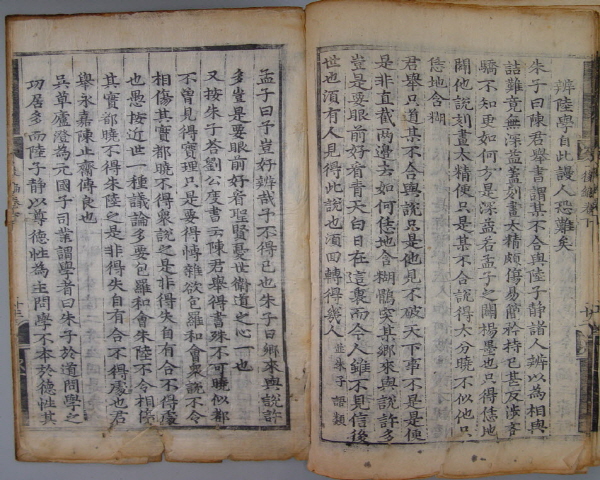 辨陸學自此謾人恐難矣
朱子曰陳君舉書謂某不合與陸子靜諸人辨以為相與
詰難竟無深益蓋刻畫太精頗傷易簡矜持已甚反涉吝
驕不知更如何方是深益若孟子之闢楊墨也只得恁地
闢他說刻畫太精便只是某不合說得太分曉不似他只
恁地含糊
君舉只道某不合與說只是他見不破天下事不是是便
是非直截兩邊去如何恁地含糊鶻突某鄉來與說許多
豈是要眼前好看青天白日在這裏而今人雖不見信後
世也須有人見得此說也須回轉得幾人 並朱子語類
孟子曰予豈好辨哉予不得已也朱子曰鄉來與說許
多豈是要眼前好看聖賢憂世衛道之心一也
又按朱子答劉公度書云陳君舉得書殊不可曉似都
不曾見得實理只是要得博雜欲包羅和會衆說不令
相傷其實都曉不得衆說之是非得失自有合不得處
也愚按近世一種議論多要包羅和會朱陸不令相傷
其實都曉不得朱陸之是非得失自有合不得處也君
舉永嘉陳止齋傅良也
吳草廬澄為元國子司業謂學者曰朱子於道問學之
功居多而陸子靜以尊德性為主問學不本於德性其
後編卷下